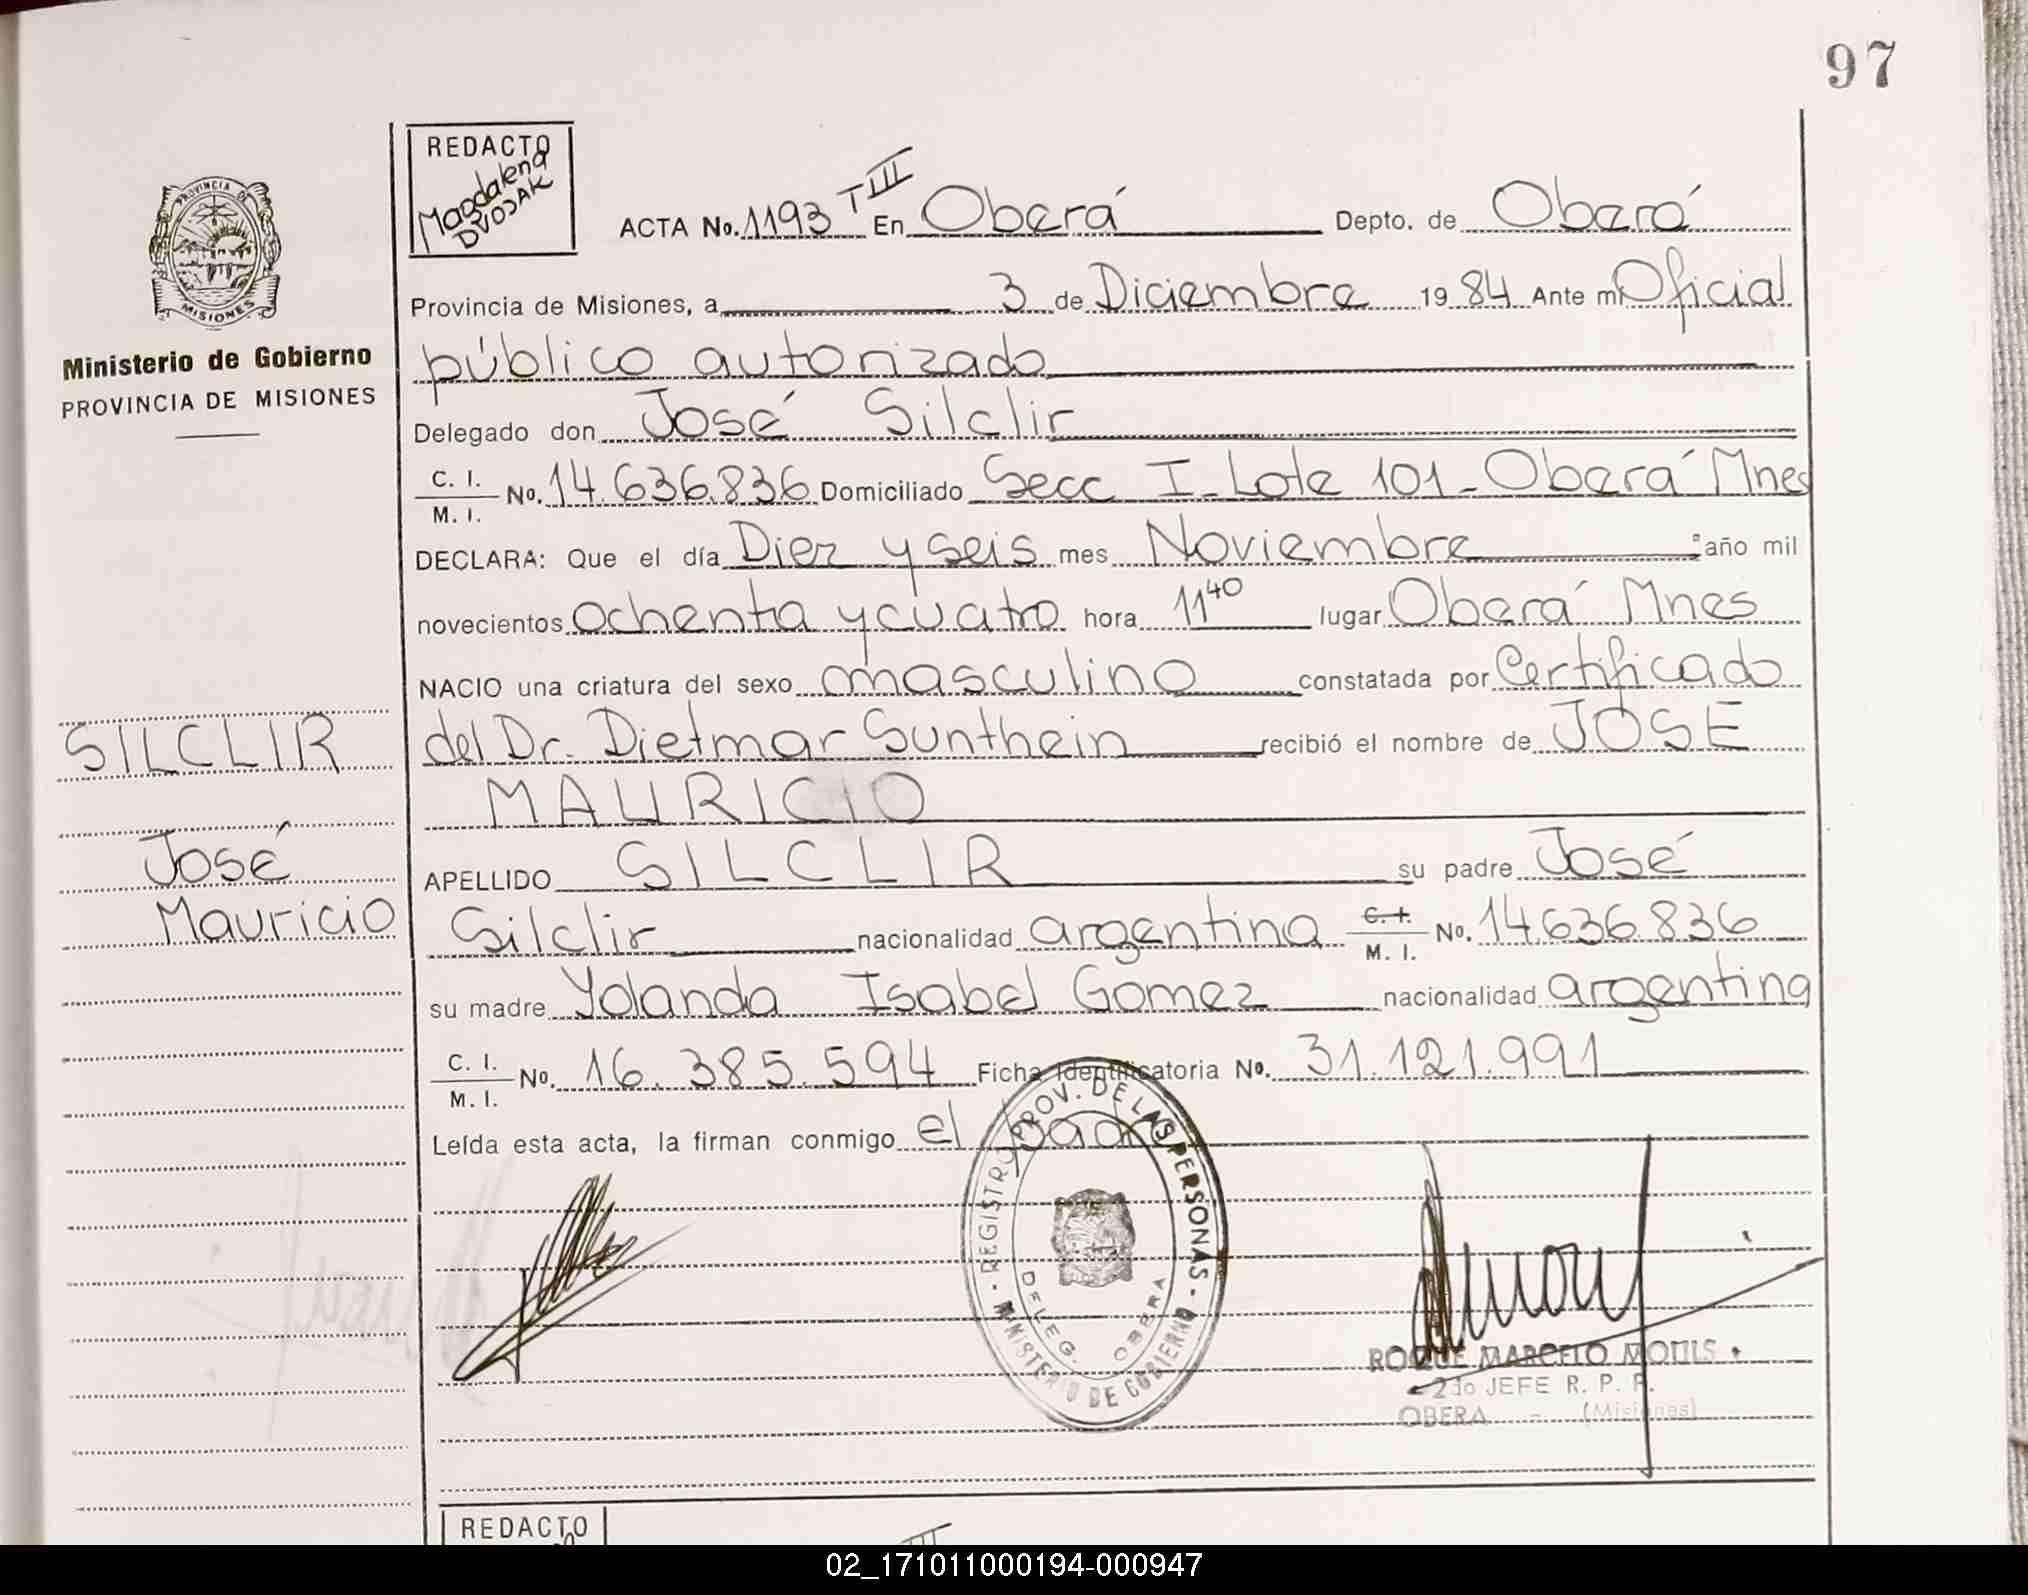 97
REDACTO
Magdalena
DVOJAK
ACTA No. 1193 T III En Oberá Depto. de Oberá
Provincia de Misiones, a 3 de Diciembre 19 84 Ante mi Oficial
público autorizado
Delegado don José Silclir
C. I. / M. I. No. 14.636.836 Domiciliado Secc I - Lote 101 - Oberá Mnes
DECLARA: Que el día Diez y seis mes Noviembre año mil
novecientos ochenta y cuatro hora 11 40 lugar Oberá Mnes
NACIO una criatura del sexo masculino constatada por Certificado
del Dr. Dietmar Sunthein recibió el nombre de JOSE
MAURICIO
APELLIDO SILCLIR su padre José
Silclir nacionalidad argentina C. I. / M. I. No. 14.636.836
su madre Yolanda Isabel Gomez nacionalidad argentina
C. I. / M. I. No. 16.385.594 Ficha Identificatoria No. 31.121.991
Leída esta acta, la firman conmigo el padre
PROVINCIA DE
MISIONES
Ministerio de Gobierno
PROVINCIA DE MISIONES
SILCLIR
José
Mauricio
REGISTRO PROV. DE LAS PERSONAS - MINISTERIO DE GOBIERNO
DELEG. OBERA
ROQUE MARCELO
2do JEFE R. P. P.
OBERA - (Misiones)
REDACTO
III
02_171011000194-000947